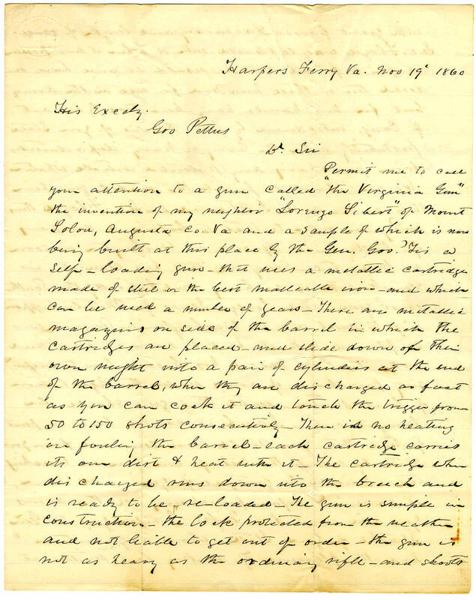 Harpers Ferry Va. Nov 19th 1860
His Excely.
Gov Pettus
Dr Sir
Permit me to call
your attention to a gun called "the Virginia Gun"
the invention of my neighbor "Lorenzo Sibert" of Mount
Solon, Augusta co. Va and a sample of which is now
being built at this place by the Gen. Govt 'Tis a
self-loading gun - that uses a metallic cartridge
made of steel or the best malleable iron - and which
can be used a number of years - There are metallic
magazines on side of the barrel in which the
cartridges are placed - and slide down of their
own weight into a pair of cylinders at the end
of the barrel, when they are discharged as fast
as you can cock it and touch the trigger from
50 to 150 shots consecutively - There is no heating
or fouling the barrel - each cartridge carries
its own dirt & heat with it - The cartridge when
discharged runs down into the breech and
is ready to be re-loaded - The gun is simple in
construction - the lock protected from the weather
and not liable to get out of order - the gun is
not as heavy as the ordinary rifle - and shoots